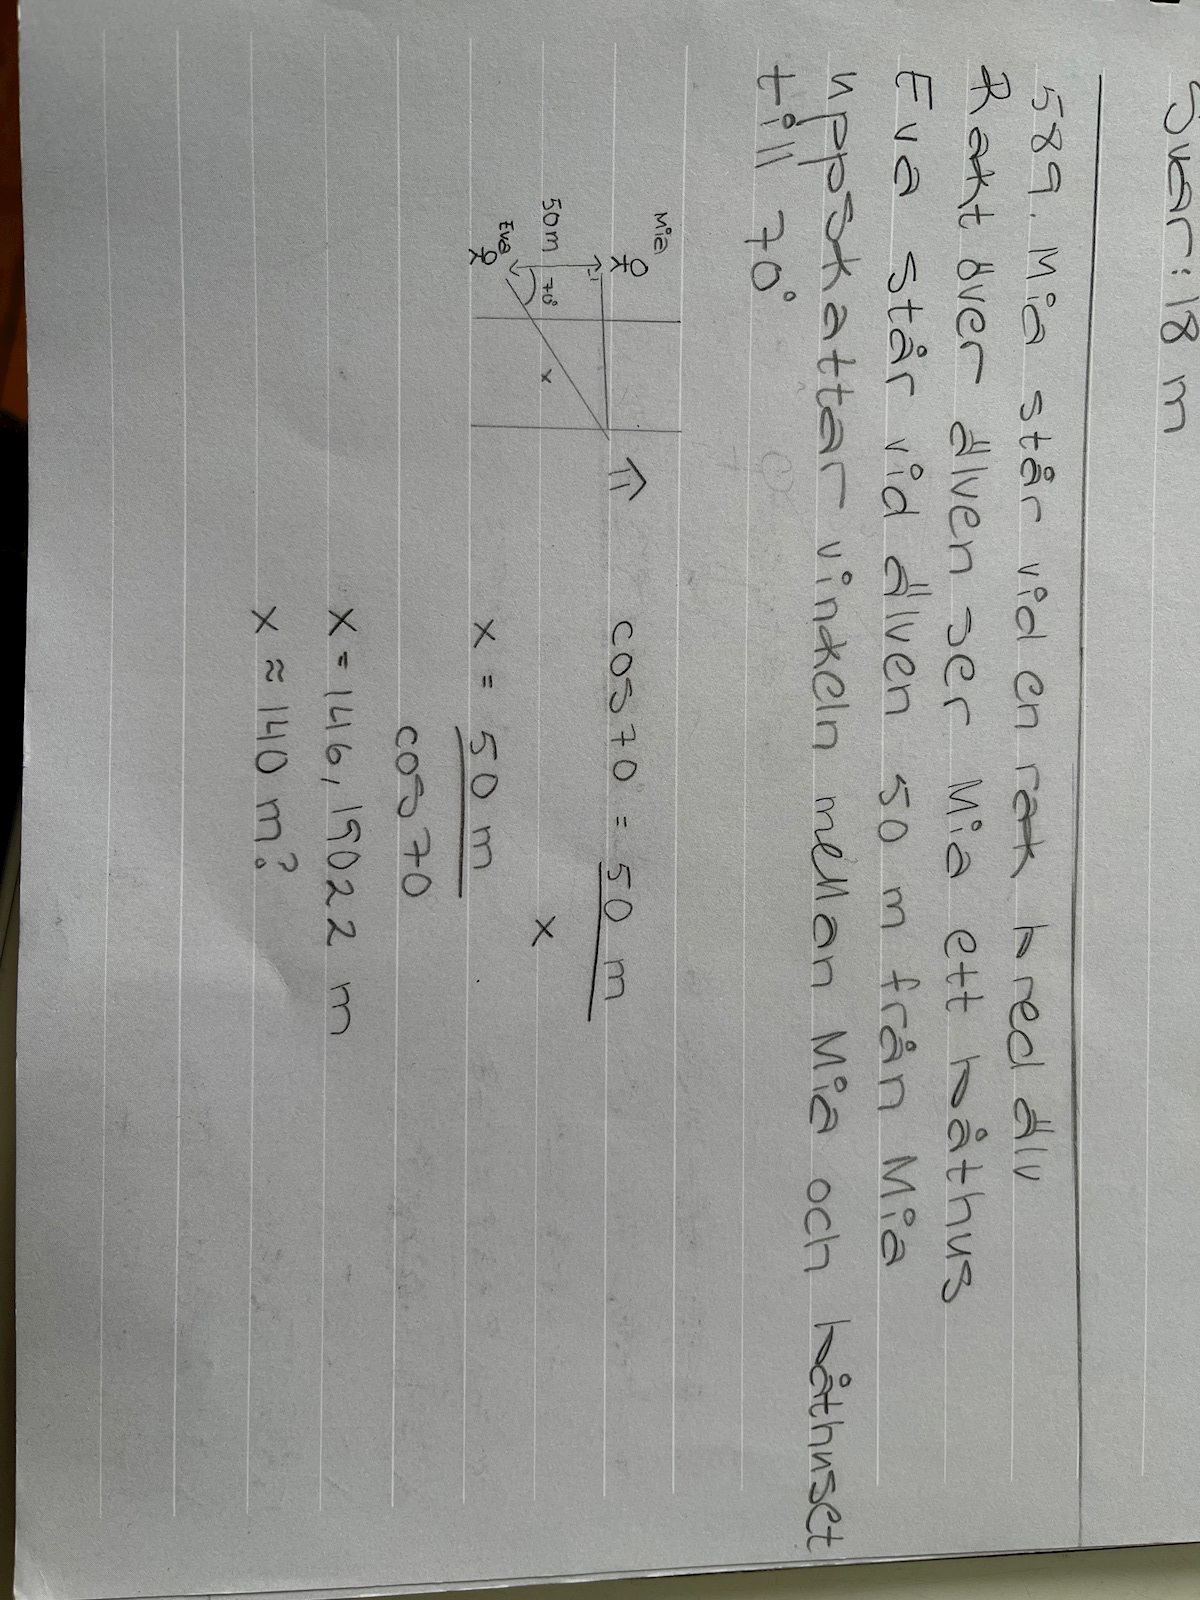 Svar: 18 m
589. Mia står vid en rak bred älv
Rakt över älven ser Mia ett båthus
Eva står vid älven 50 m från Mia
uppskattar vinkeln mellan Mia och båthuset
till 70°
Mia
50 m
Eva
70°
x
cos 70° = 50 m
x
x = 50 m
cos 70
x = 146,19022 m
x ≈ 140 m?